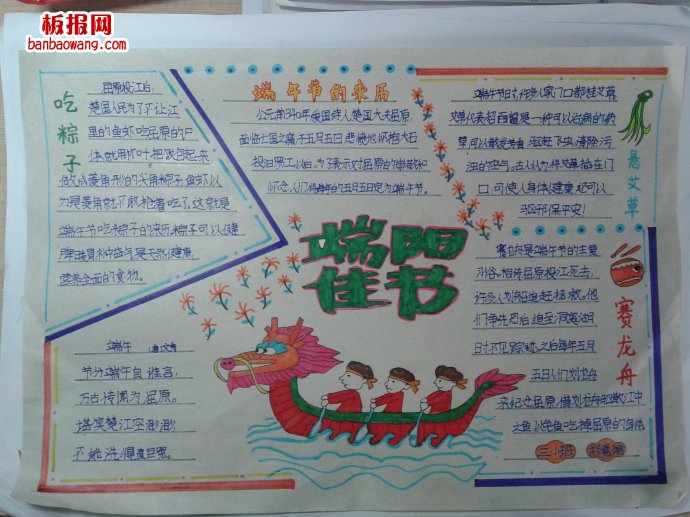 板报网
banbaowang.com
吃粽子
屈原投江后,
楚国人民为了不让江
里的鱼虾吃屈原的尸
体,就用竹叶把饭包起来
做成菱角形的尖角粽子,鱼虾以
为是菱角就不敢抢着吃了,这就是
端午节吃粽子的来历.粽子可以健
营养全面的食物。
端午节的来历
公元前340年,爱国诗人楚国大夫屈原
面临亡国之痛,于五月五日,悲愤地怀抱大石
投汨罗江,以后,为了表示对屈原的尊敬和
怀念,人们将每年的五月五日定为端午节。
悬艾草
端午节时,许多人家门口都挂艾草
艾草代表招百福,是一种可以治病的药
草,可以散发芳香,驱赶飞虫,清除污
浊的空气。古人认为将艾草插在门
口,可使人身体健康,还可以
保平安!
端阳佳节
赛龙舟
赛龙舟是端午节的主要
习俗。相传屈原投江死去,
许多人划船追赶拯救。他
们争先恐后,追至洞庭湖
时不见踪迹,之后每年五月
五日人们划龙舟
来纪念屈原,借划龙舟驱散江中
之鱼,以免鱼吃掉屈原的身体
三小班
端午
节分端午自谁言,
万古传闻为屈原。
堪笑楚江空渺渺
不能洗得直臣冤。